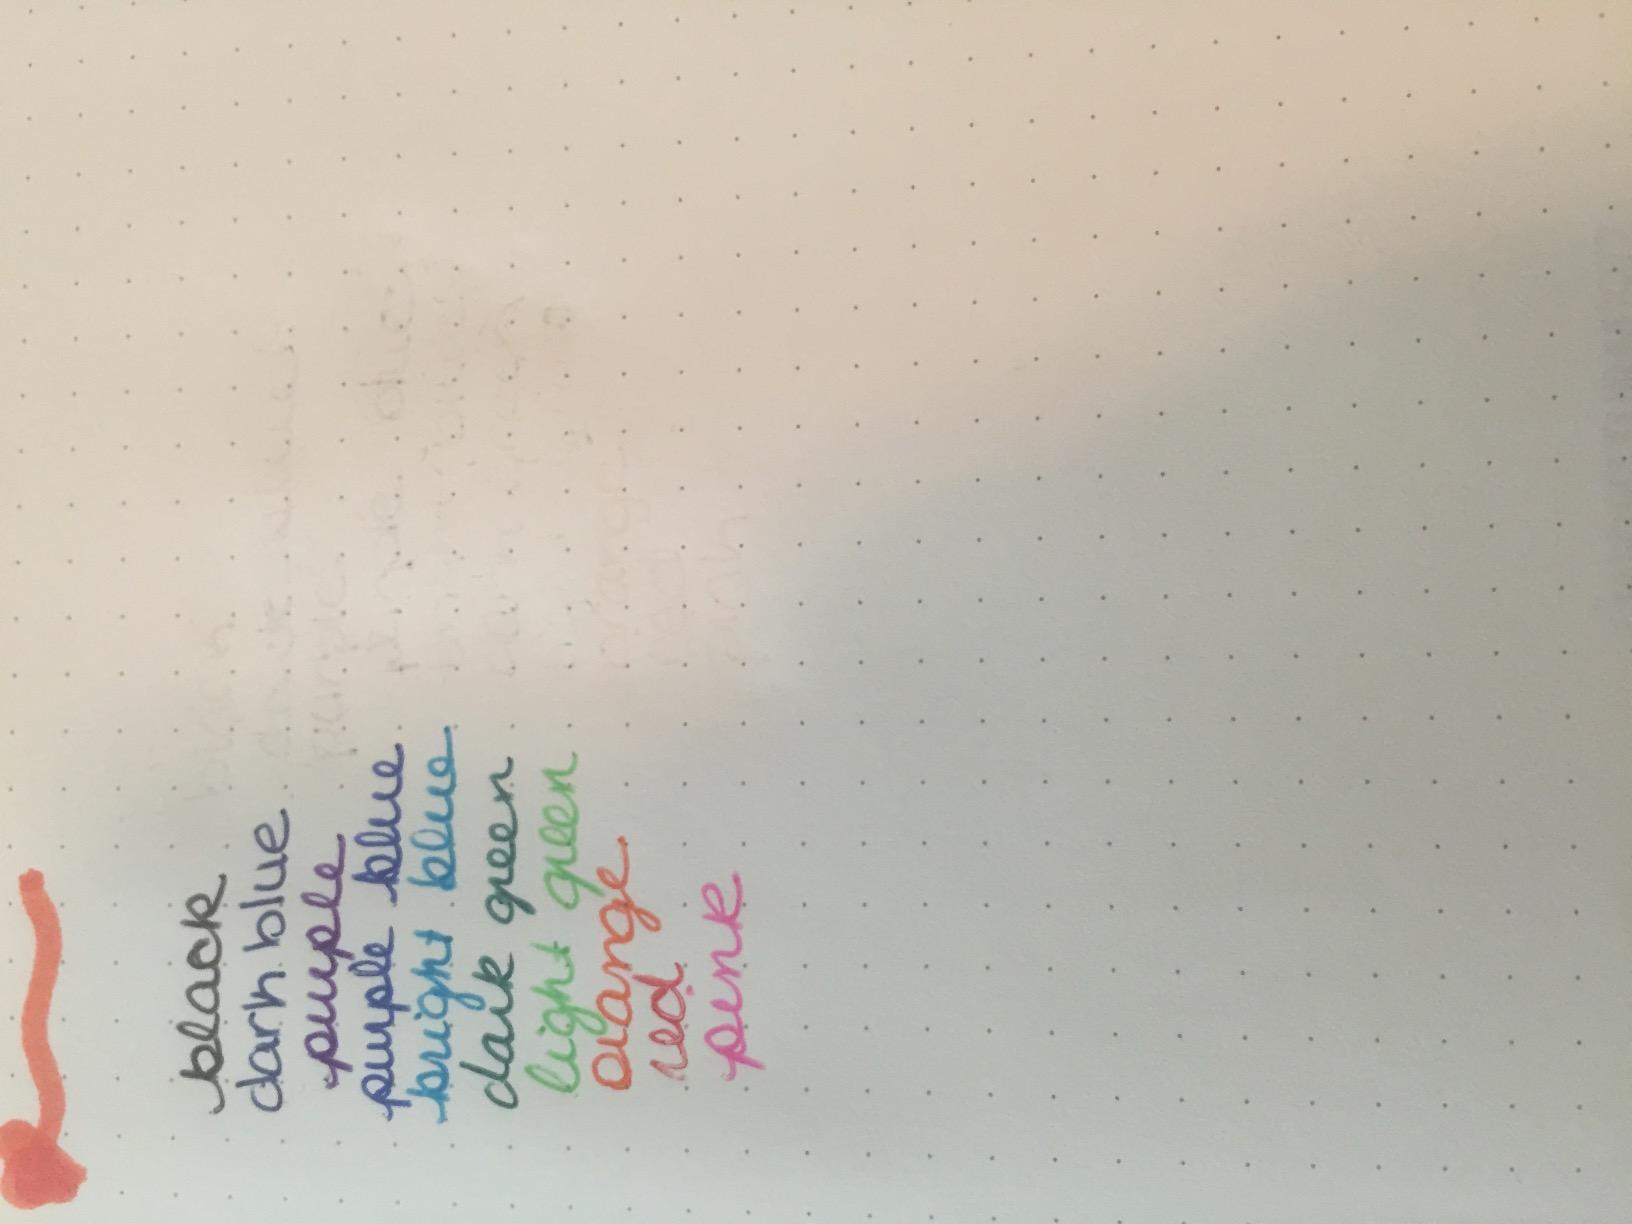 black
dark blue
purple
purple blue
bright blue
dark green
light green
orange
red
pink